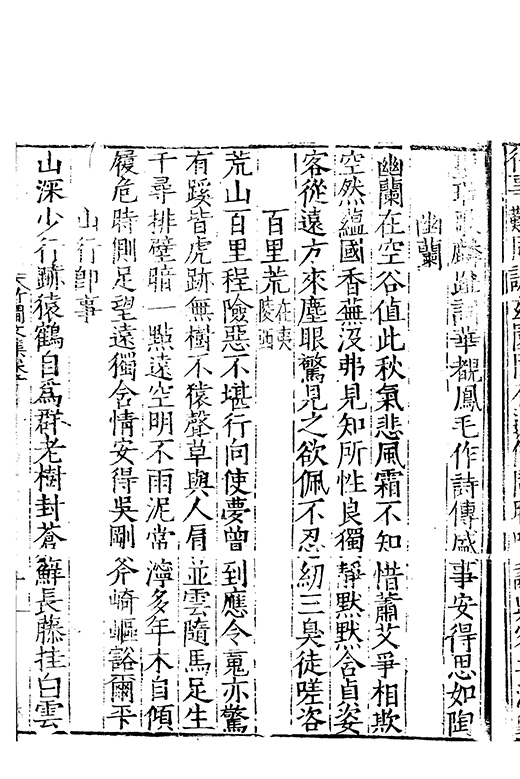 趾詞華覩鳳毛作詩傳盛事安得思如陶
幽蘭
幽蘭在空谷值此秋氣悲風霜不知惜蕭艾爭相欺
空然蘊國香蕪沒弗見知所性良獨靜默默含貞姿
客從遠方來塵眼驚見之欲佩不忍紉三臭徒嗟咨
百里荒在夷陵西
荒山百里程險惡不堪行向使夢曾到應令䰟亦驚
有蹊皆虎跡無樹不猿聲草與人肩並雲隨馬足生
千尋排壁暗一點遠空明不雨泥常濘多年木自傾
履危時側足望遠獨含情安得吳剛斧崎嶇豁爾平
山行卽事
山深少行跡猿鶴自爲群老樹封蒼蘚長藤挂白雲